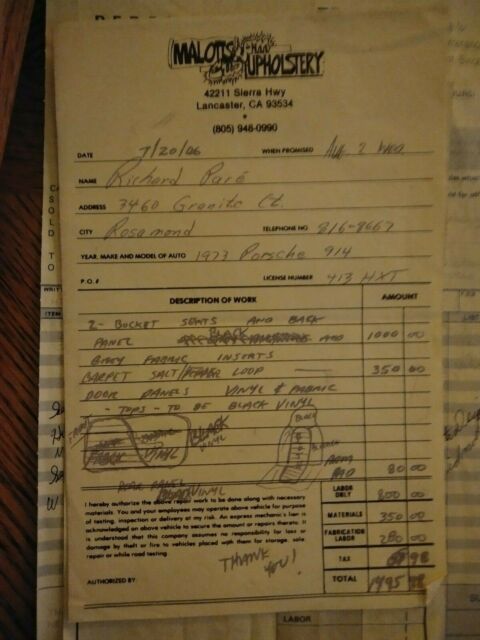 MALOTTS
UPHOLSTERY
42211 Sierra Hwy
Lancaster, CA 93534
(805) 948-0990
DATE 7/20/06 WHEN PROMISED Aug 2 Wed
NAME Richard Paré
ADDRESS 3460 Granite Ct.
CITY Rosamond TELEPHONE NO 816-8667
YEAR, MAKE AND MODEL OF AUTO 1973 Porsche 914
P.O.# LICENSE NUMBER 413 HXT
DESCRIPTION OF WORK AMOUNT
2- BUCKET SEATS AND BACK
PANEL BLACK AND 1000 00
GREY FABRIC INSERTS
CARPET SALT/PEPPER LOOP 350 00
DOOR PANELS VINYL & FABRIC
- TOPS - TO BE BLACK VINYL
BLACK
FABRIC VINYL BLACK VINYL
REAR PANEL
VINYL
80 00
I hereby authorize the above repair work to be done along with necessary
materials. You and your employees may operate above vehicle for purpose
of testing, inspection or delivery at my risk. An express mechanic's lien is
acknowledged on above vehicle to secure the amount or repairs thereto. It
is understood that this company assumes no responsibility for loss or
damage by theft or fire to vehicles placed with them for storage, sale,
repair or while road testing.
THANK
YOU!
AUTHORIZED BY:
LABOR ONLY 800 00
MATERIALS 350 00
FABRICATION LABOR 280 00
TAX 98
TOTAL 1495 98
LABOR